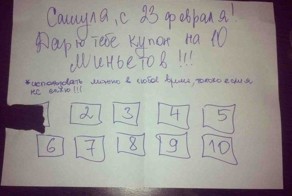 Сашула, с 23 февраля!
Дарю тебе купон на 10
Миньетов !!!
*использовать можно в любое время, только если я
не сплю!!!
2 3 4 5
6 7 8 9 10